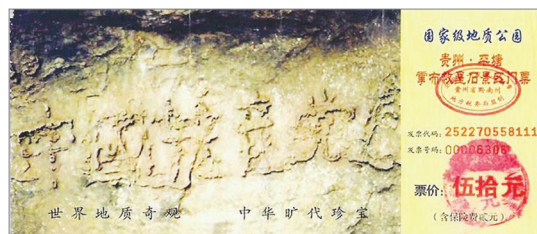 中國共产党亡
世界地质奇观 中华旷代珍宝
国家级地质公园
贵州·平塘
掌布 景区门票
贵州省黔南州
发票代码: 252270558111
发票号码: 00006306
票价: 伍拾元
(含保险费贰元)